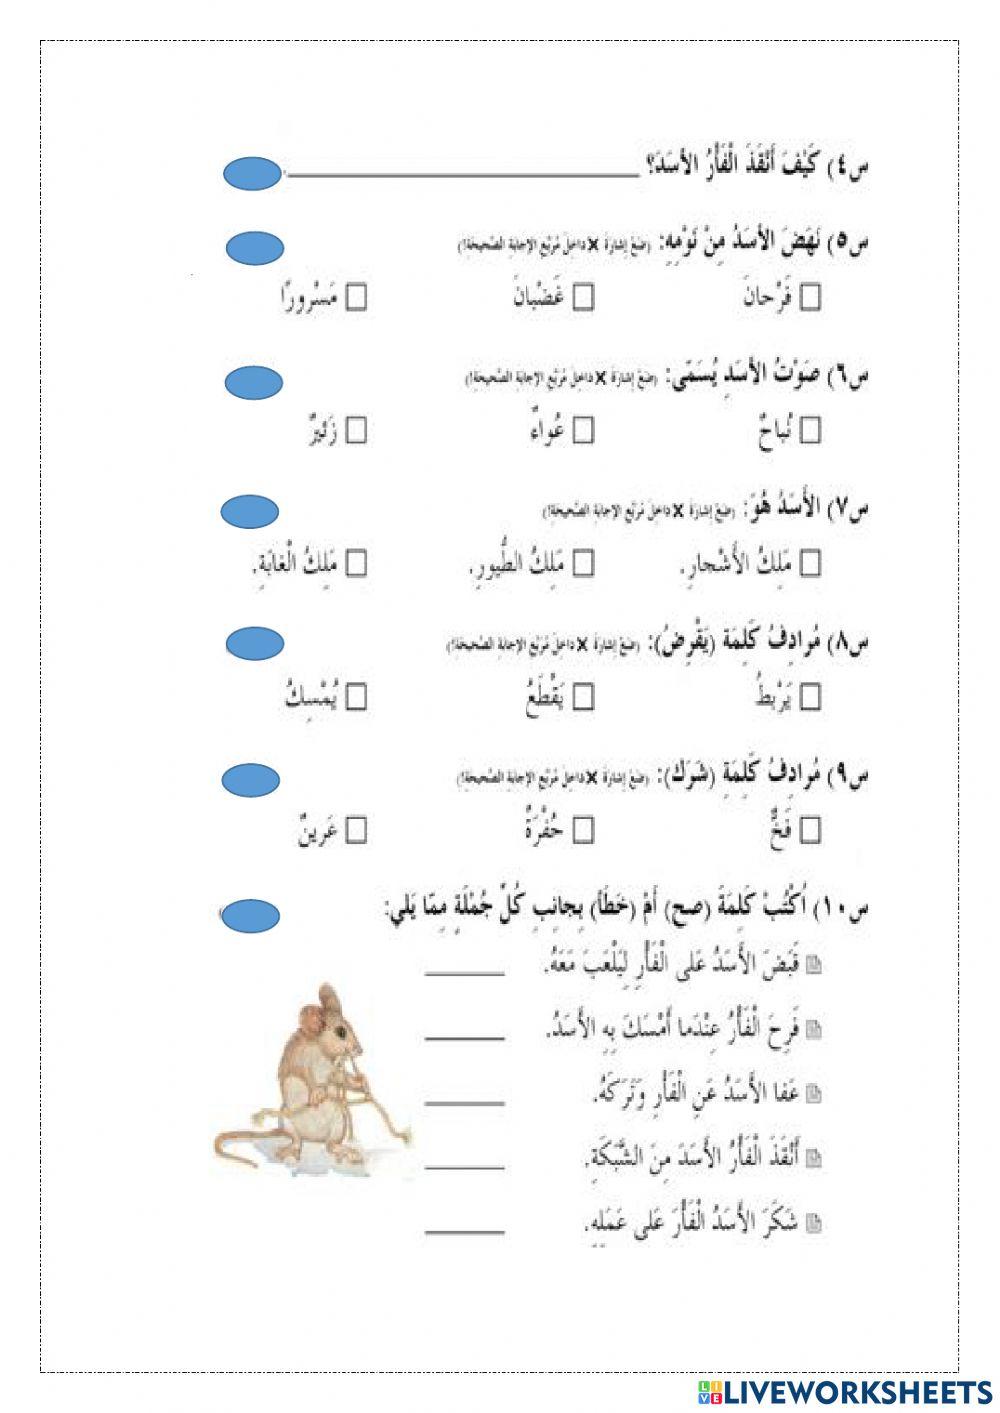 س٤) كَيْفَ أَنْقَذَ الْفَأْرُ الأسَدَ؟
س٥) نَهَضَ الأسَدُ مِنْ نَوْمِهِ: (ضَعْ إشارَةَ × داخِلَ مُرَبَّعِ الإجابَةِ الصَّحيحَةِ!)
فَرْحانَ غَضْبانَ مَسْرورًا
س٦) صَوْتُ الأسَدِ يُسَمّى: (ضَعْ إشارَةَ × داخِلَ مُرَبَّعِ الإجابَةِ الصَّحيحَةِ!)
نُباحٌ عُواءٌ زَئيرٌ
س٧) الأَسَدُ هُوَ: (ضَعْ إشارَةَ × داخِلَ مُرَبَّعِ الإجابَةِ الصَّحيحَةِ!)
مَلِكُ الأَشْجارِ. مَلِكُ الطُّيورِ. مَلِكُ الْغابَةِ.
س٨) مُرادِفُ كَلِمَةِ (يَقْرِضُ): (ضَعْ إشارَةَ × داخِلَ مُرَبَّعِ الإجابَةِ الصَّحيحَةِ!)
يَرْبِطُ يَقْطَعُ يُمْسِكُ
س٩) مُرادِفُ كَلِمَةِ (شَرَك): (ضَعْ إشارَةَ × داخِلَ مُرَبَّعِ الإجابَةِ الصَّحيحَةِ!)
فَخٌّ حُفْرَةٌ عَرينٌ
س١٠) اُكْتُبْ كَلِمَةَ (صح) أَمْ (خَطَأ) بِجانِبِ كُلِّ جُمْلَةٍ مِمّا يَلي:
قَبَضَ الأَسَدُ عَلى الْفَأْرِ لِيَلْعَبَ مَعَهُ.
فَرِحَ الْفَأْرُ عِنْدَما أَمْسَكَ بِهِ الأَسَدُ.
عَفا الأَسَدُ عَنِ الْفَأْرِ وَتَرَكَهُ.
أَنْقَذَ الْفَأْرُ الأَسَدَ مِنَ الشَّبَكَةِ.
شَكَرَ الأَسَدُ الْفَأْرَ عَلى عَمَلِهِ.
LIVEWORKSHEETS